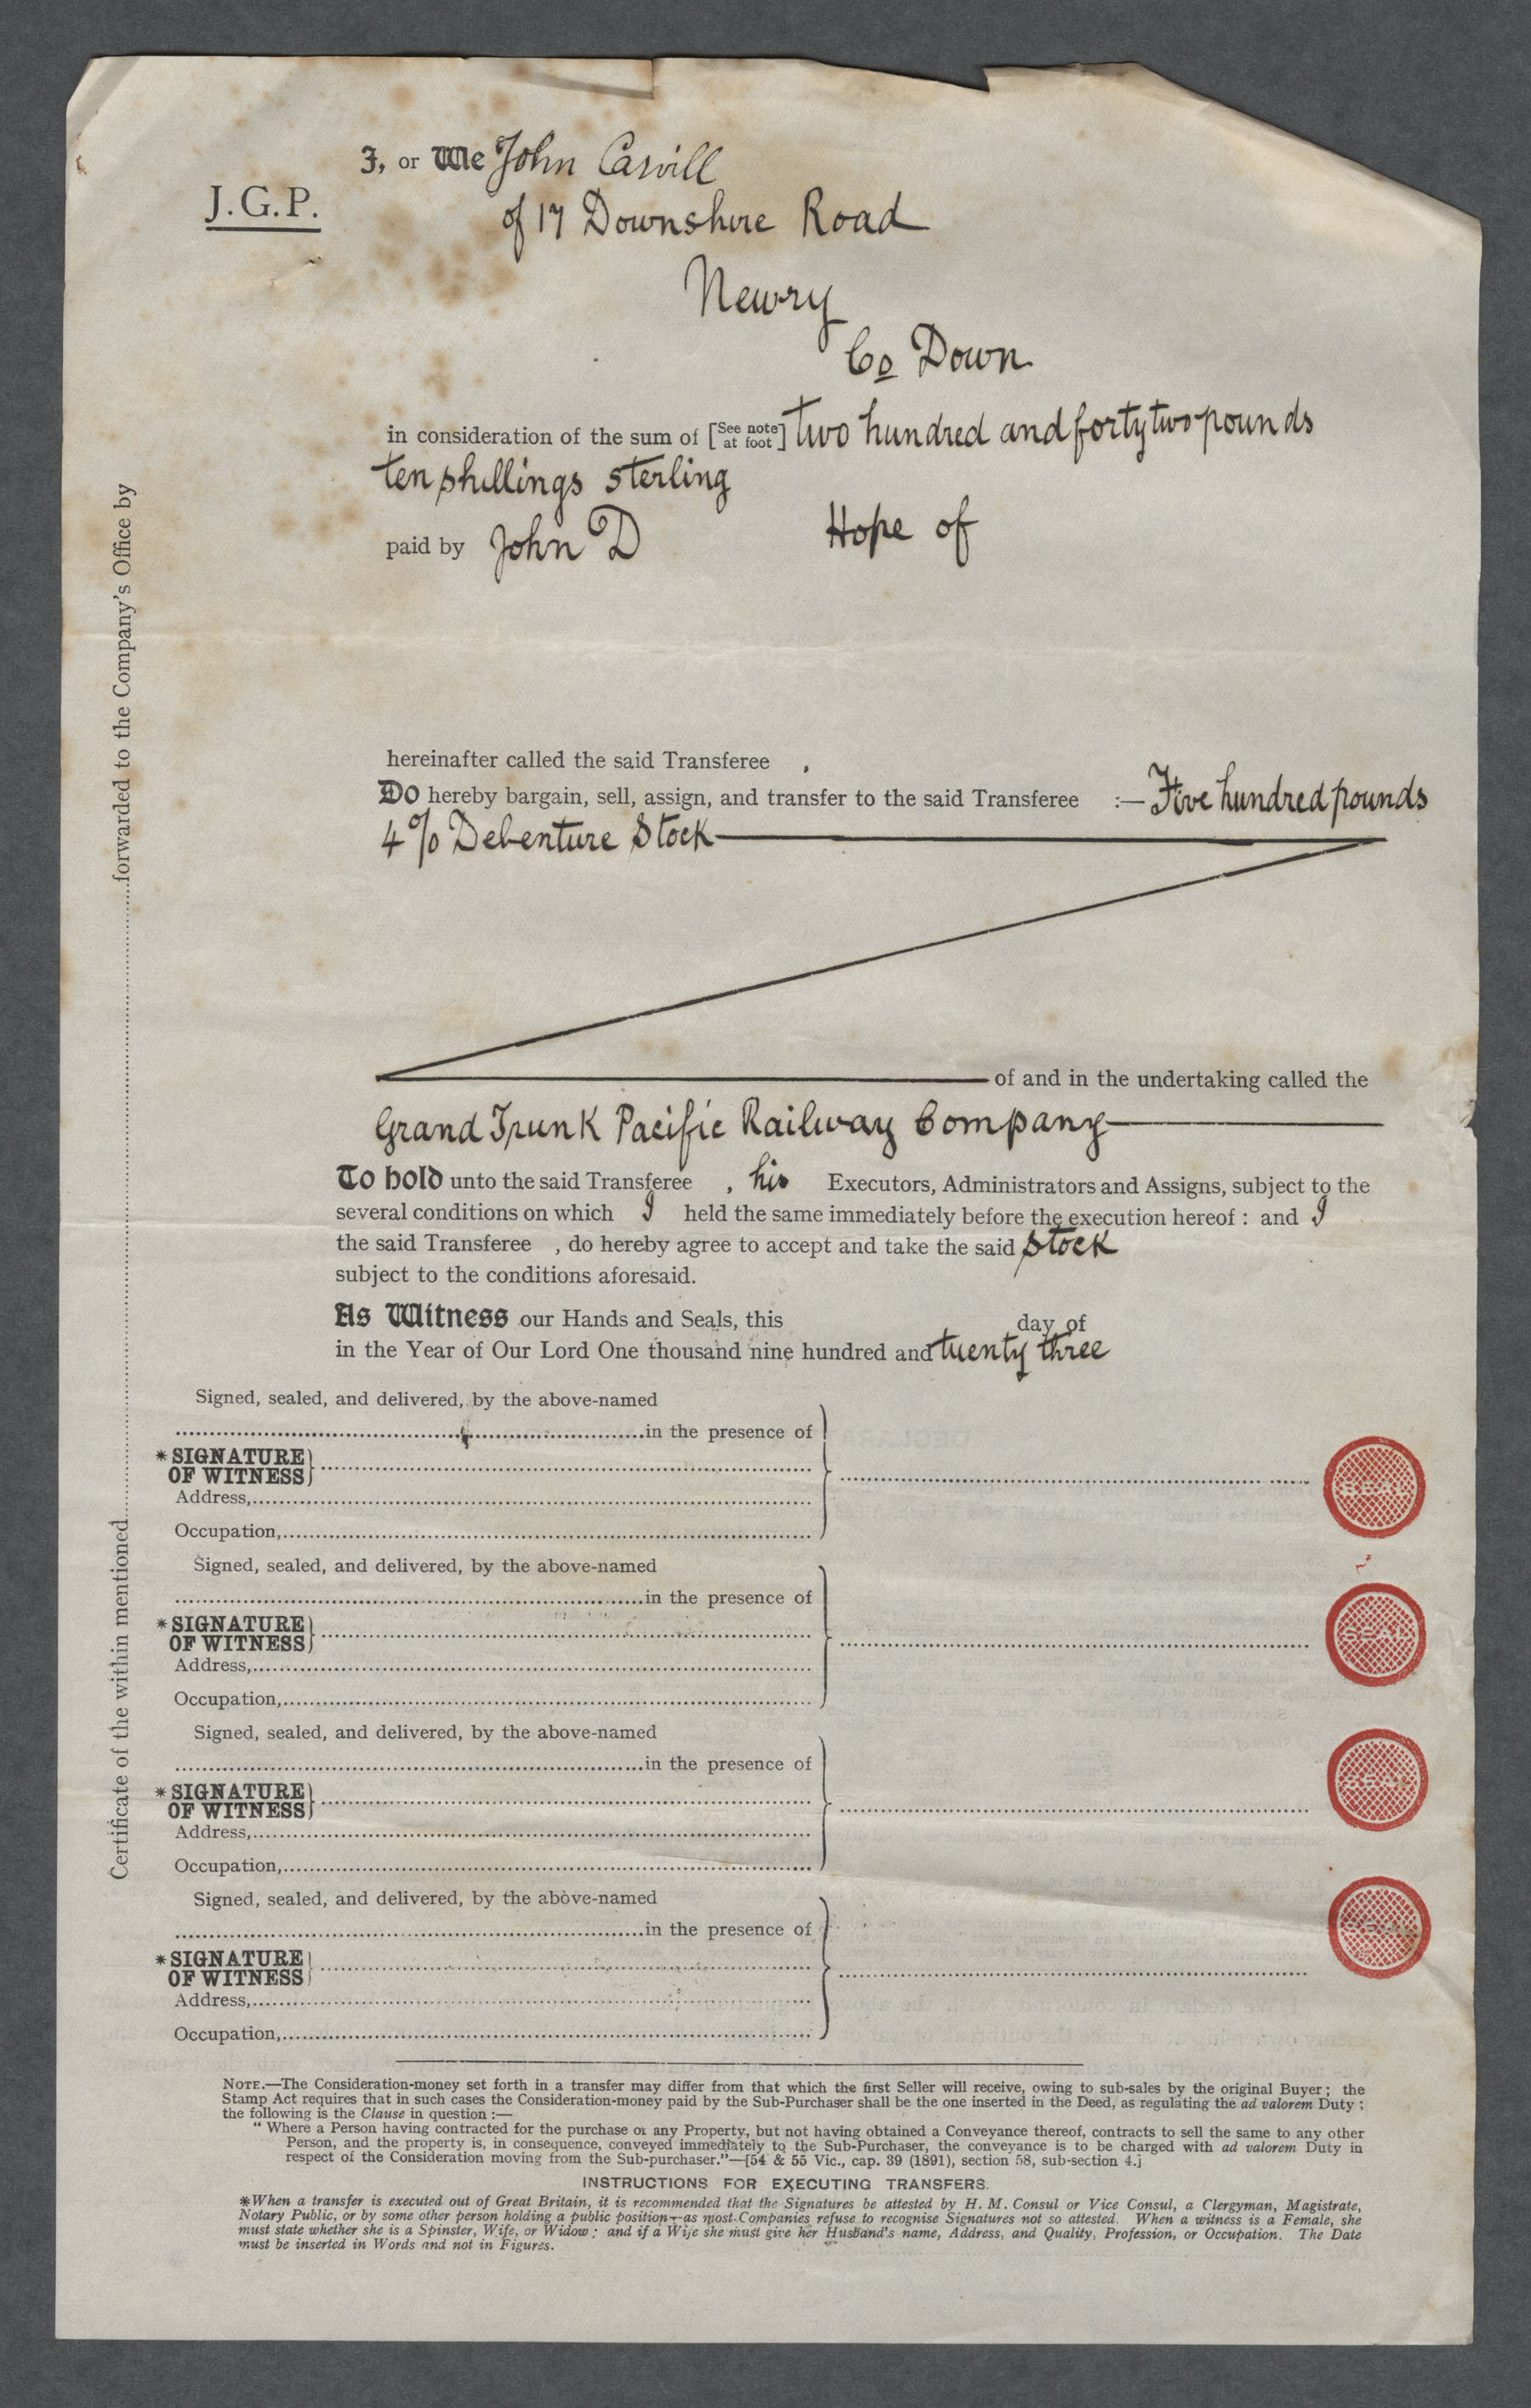 I, or We John Carvill
J.G.P.
of 17 Downshire Road
Newry
Co Down
in consideration of the sum of [See note at foot] two hundred and forty two pounds
ten shillings sterling
paid by John D Hope of
hereinafter called the said Transferee ,
Do hereby bargain, sell, assign, and transfer to the said Transferee :— Five hundred pounds
4% Debenture Stock
of and in the undertaking called the
Grand Trunk Pacific Railway Company
To hold unto the said Transferee , his Executors, Administrators and Assigns, subject to the
several conditions on which I held the same immediately before the execution hereof : and I
the said Transferee , do hereby agree to accept and take the said Stock
subject to the conditions aforesaid.
As Witness our Hands and Seals, this day of
in the Year of Our Lord One thousand nine hundred and twenty three
Signed, sealed, and delivered, by the above-named
in the presence of
*SIGNATURE
OF WITNESS
Address,
Occupation,
SEAL
Signed, sealed, and delivered, by the above-named
in the presence of
*SIGNATURE
OF WITNESS
Address,
Occupation,
SEAL
Signed, sealed, and delivered, by the above-named
in the presence of
*SIGNATURE
OF WITNESS
Address,
Occupation,
SEAL
Signed, sealed, and delivered, by the above-named
in the presence of
*SIGNATURE
OF WITNESS
Address,
Occupation,
SEAL
Certificate of the within mentioned forwarded to the Company's Office by
NOTE.—The Consideration-money set forth in a transfer may differ from that which the first Seller will receive, owing to sub-sales by the original Buyer ; the
Stamp Act requires that in such cases the Consideration-money paid by the Sub-Purchaser shall be the one inserted in the Deed, as regulating the ad valorem Duty ;
the following is the Clause in question :—
" Where a Person having contracted for the purchase of any Property, but not having obtained a Conveyance thereof, contracts to sell the same to any other
Person, and the property is, in consequence, conveyed immediately to the Sub-Purchaser, the conveyance is to be charged with ad valorem Duty in
respect of the Consideration moving from the Sub-purchaser."—[54 & 55 Vic., cap. 39 (1891), section 58, sub-section 4.]
INSTRUCTIONS FOR EXECUTING TRANSFERS.
*When a transfer is executed out of Great Britain, it is recommended that the Signatures be attested by H. M. Consul or Vice Consul, a Clergyman, Magistrate,
Notary Public, or by some other person holding a public position—as most Companies refuse to recognise Signatures not so attested. When a witness is a Female, she
must state whether she is a Spinster, Wife, or Widow ; and if a Wife she must give her Husband's name, Address, and Quality, Profession, or Occupation. The Date
must be inserted in Words and not in Figures.